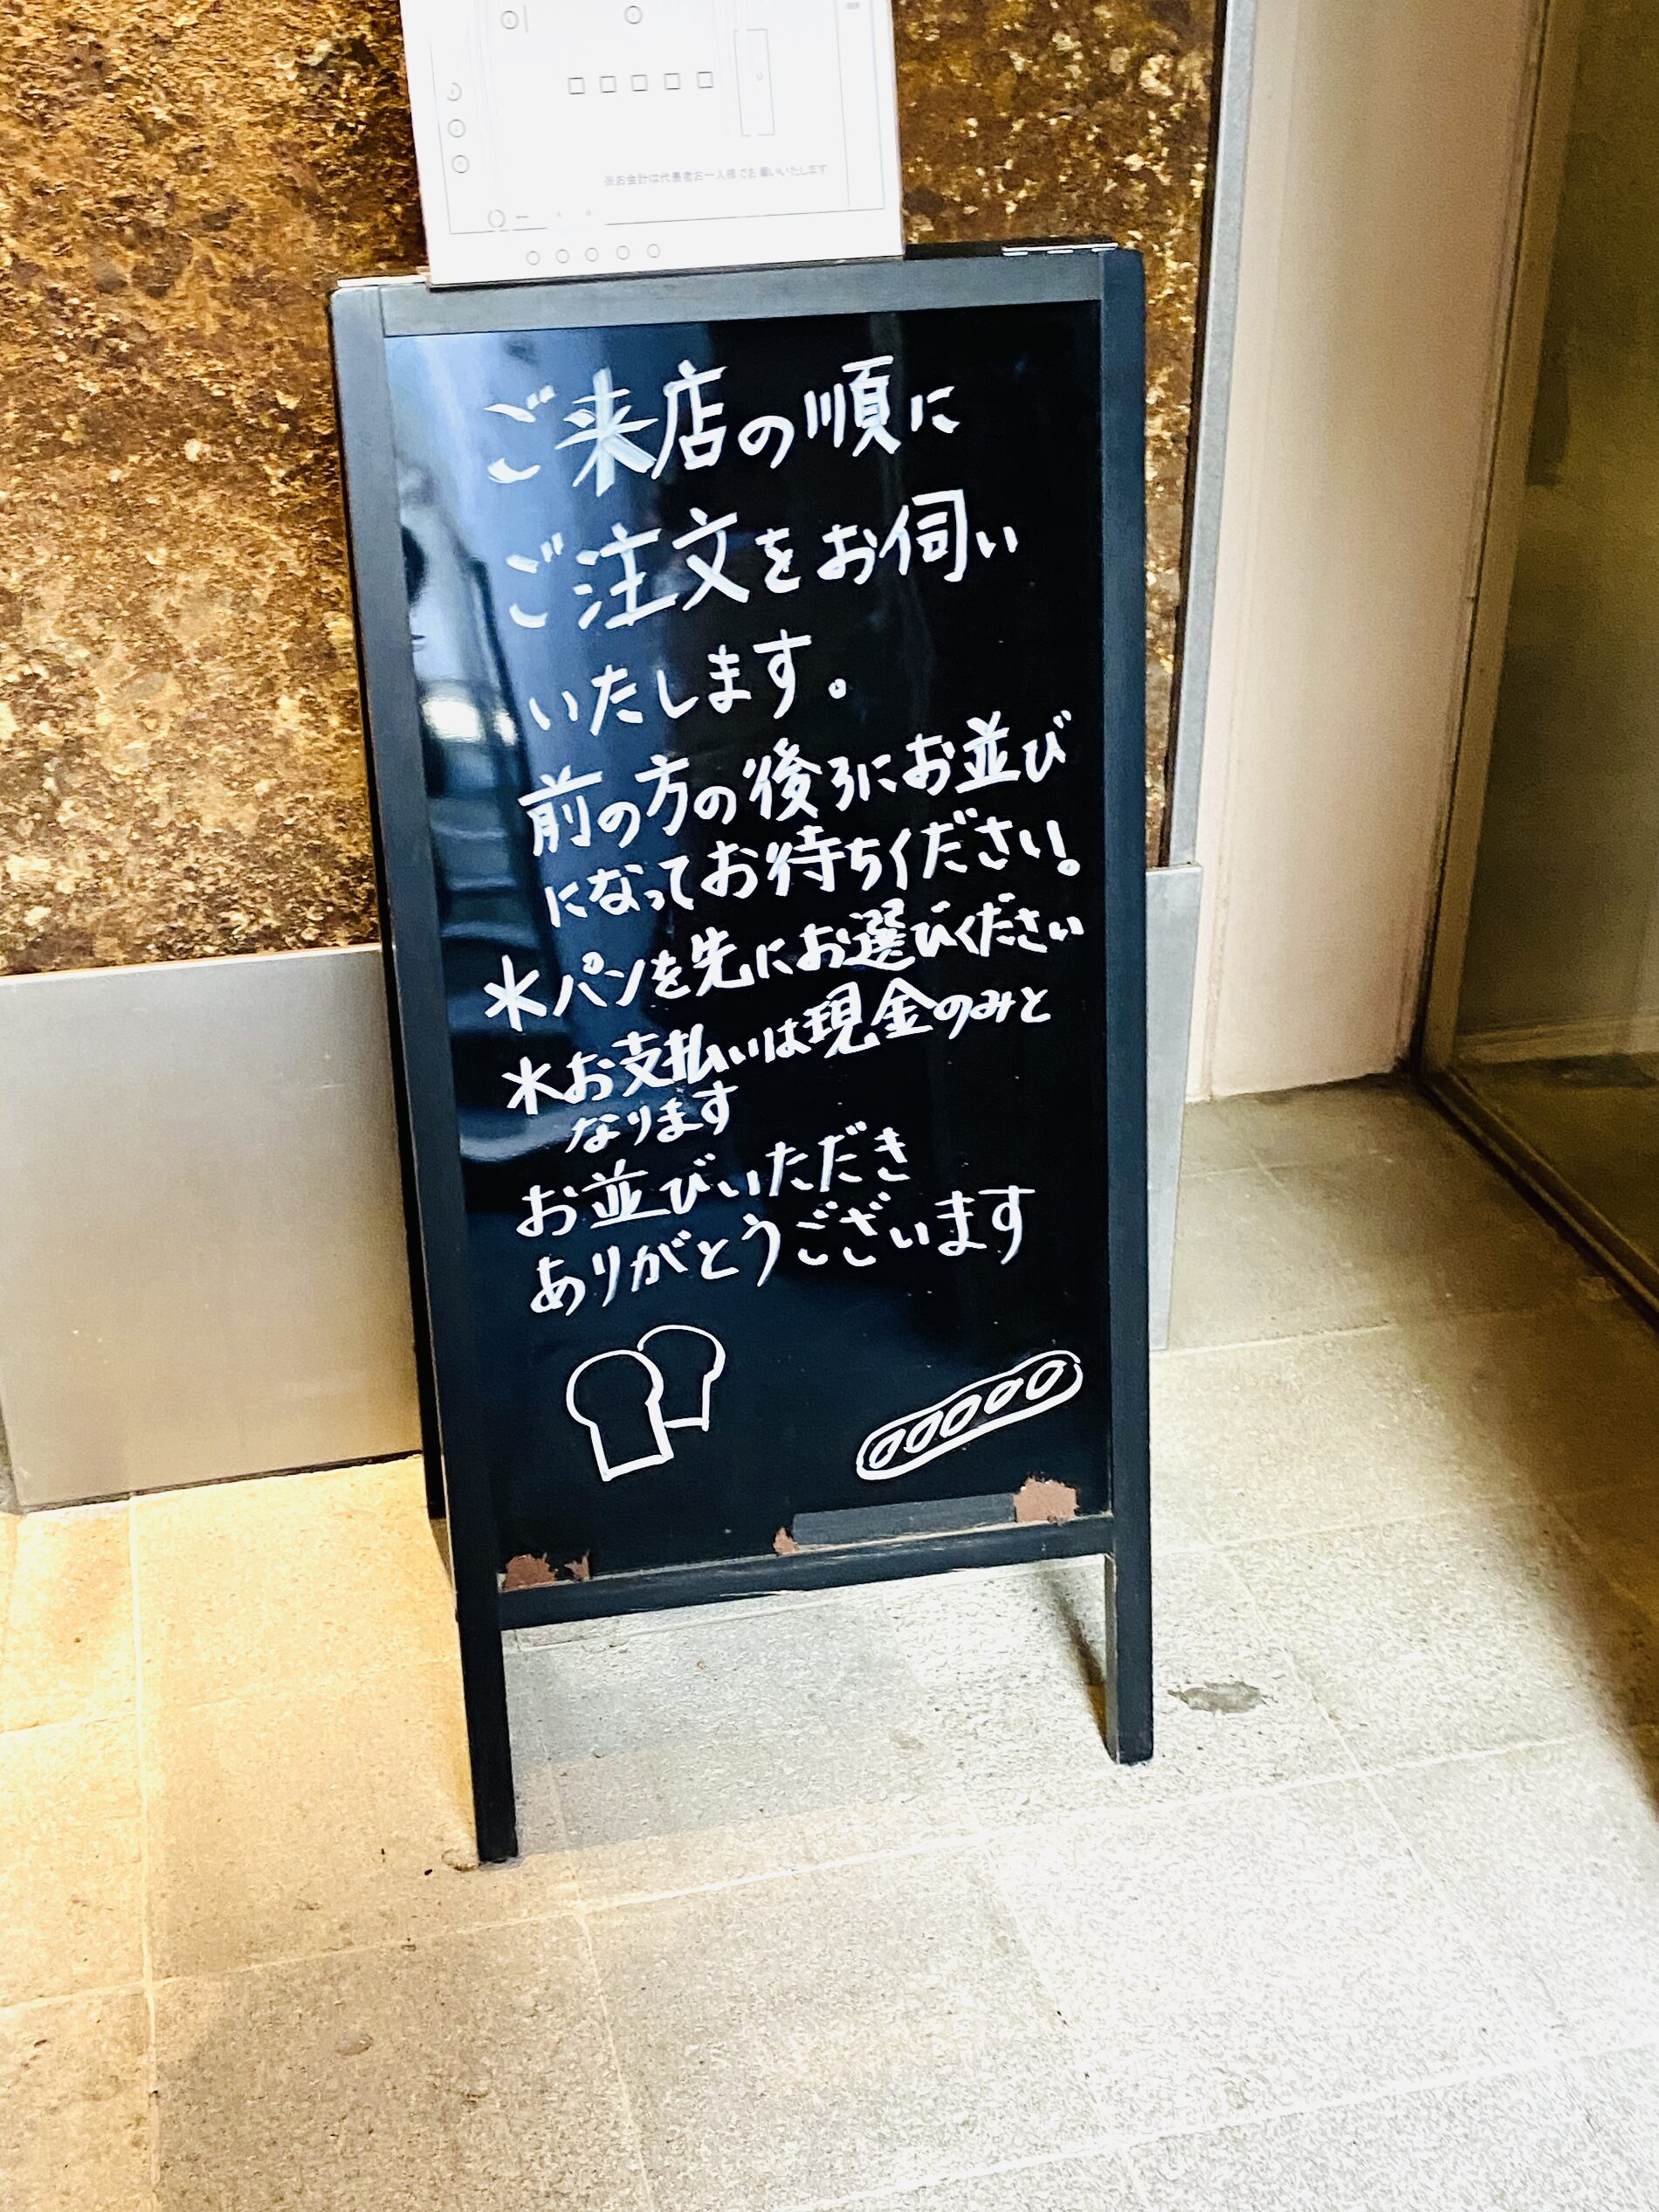 ※お会計は代表者お一人様でお願いいたします
ご来店の順に
ご注文をお伺い
いたします。
前の方の後ろにお並び
になってお待ちください。
*パンを先にお選びください
*お支払いは現金のみと
なります
お並びいただき
ありがとうございます